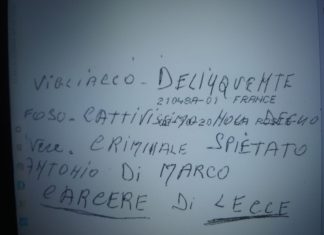 VIGLIACCO - DELINQUENTE
21048A-01 FRANCE
CATTIVISSIMO
CRIMINALE SPIETATO
ANTONIO DI MARCO
CARCERE DI LECCE